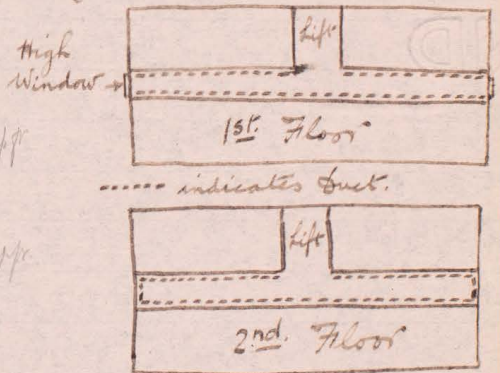 Lift
High
Window
1st. Floor
indicates Duct.
Lift
2nd. Floor